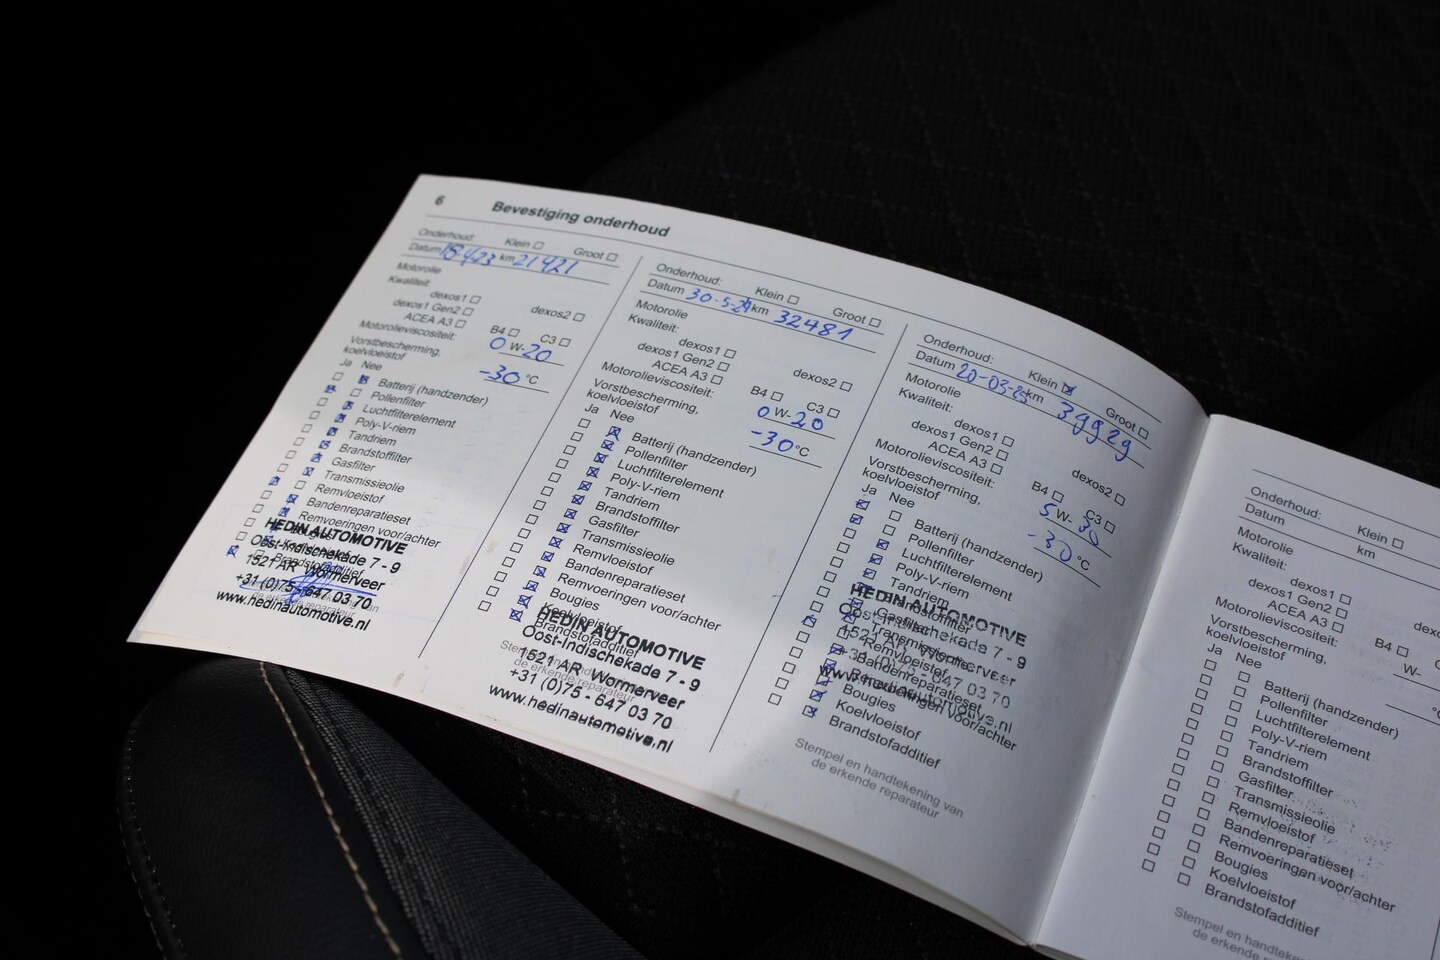 6
Bevestiging onderhoud
Onderhoud: Klein Groot
Datum 18/4/23 km 21421
Motorolie
Kwaliteit:
dexos1 dexos2
dexos1 Gen2
ACEA A3 B4 C3
Motorolieviscositeit: 0 W- 20
Vorstbescherming,
koelvloeistof -30 °C
Ja Nee
Batterij (handzender)
Pollenfilter
Luchtfilterelement
Poly-V-riem
Tandriem
Brandstoffilter
Gasfilter
Transmissieolie
Remvloeistof
Bandenreparatieset
Remvoeringen voor/achter
Bougies
Koelvloeistof
Brandstofadditief
HEDIN AUTOMOTIVE
Oost-Indischekade 7 - 9
1521 AR Wormerveer
+31 (0)75 - 647 03 70
www.hedinautomotive.nl
Onderhoud: Klein Groot
Datum 30-5-24 km 32481
Motorolie
Kwaliteit:
dexos1 dexos2
dexos1 Gen2
ACEA A3 B4 C3
Motorolieviscositeit: 0 W- 20
Vorstbescherming,
koelvloeistof -30 °C
Ja Nee
Batterij (handzender)
Pollenfilter
Luchtfilterelement
Poly-V-riem
Tandriem
Brandstoffilter
Gasfilter
Transmissieolie
Remvloeistof
Bandenreparatieset
Remvoeringen voor/achter
Bougies
Koelvloeistof
Brandstofadditief
HEDIN AUTOMOTIVE
Oost-Indischekade 7 - 9
1521 AR Wormerveer
+31 (0)75 - 647 03 70
www.hedinautomotive.nl
Onderhoud: Klein Groot
Datum 20-03-25 km 39929
Motorolie
Kwaliteit:
dexos1 dexos2
dexos1 Gen2
ACEA A3 B4 C3
Motorolieviscositeit: 5 W- 30
Vorstbescherming,
koelvloeistof -30 °C
Ja Nee
Batterij (handzender)
Pollenfilter
Luchtfilterelement
Poly-V-riem
Tandriem
Brandstoffilter
Gasfilter
Transmissieolie
Remvloeistof
Bandenreparatieset
Remvoeringen voor/achter
Bougies
Koelvloeistof
Brandstofadditief
HEDIN AUTOMOTIVE
Oost-Indischekade 7 - 9
1521 AR Wormerveer
+31 (0)75 - 647 03 70
www.hedinautomotive.nl
Stempel en handtekening van
de erkende reparateur
Onderhoud: Klein
Datum km
Motorolie
Kwaliteit:
dexos1
dexos1 Gen2
ACEA A3 B4
Motorolieviscositeit: W-
Vorstbescherming,
koelvloeistof
Ja Nee
Batterij (handzender)
Pollenfilter
Luchtfilterelement
Poly-V-riem
Tandriem
Brandstoffilter
Gasfilter
Transmissieolie
Remvloeistof
Bandenreparatieset
Remvoeringen voor/achter
Bougies
Koelvloeistof
Brandstofadditief
Stempel en handtekening
de erkende